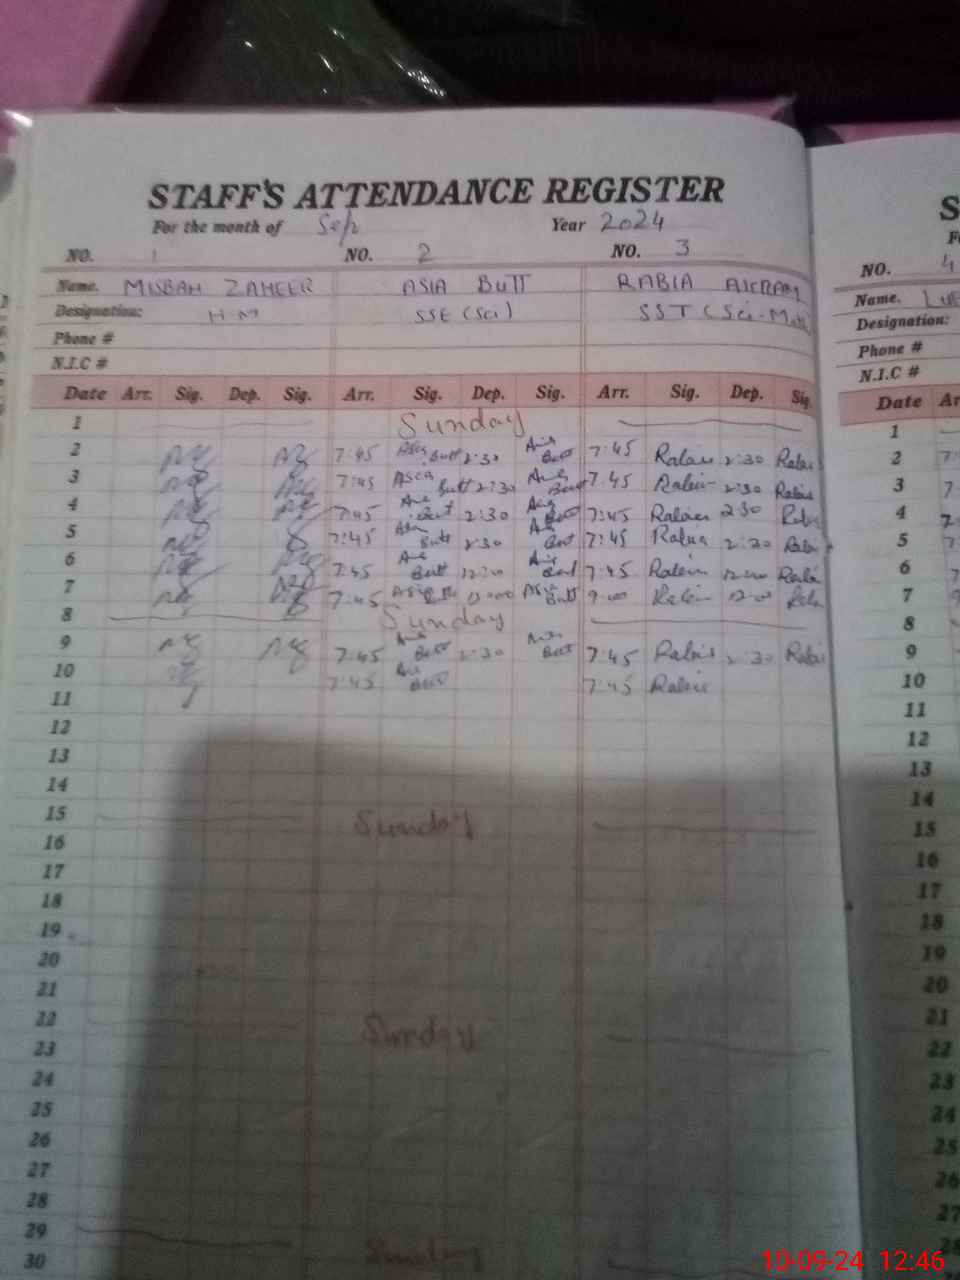 STAFF'S ATTENDANCE REGISTER
For the month of Sep Year 2024
NO. 1 NO. 2 NO. 3
Name. MISBAH ZAHEER ASIA BUTT RABIA AKRAM
Designation: H.M SSE (Sci) SST (Sci-Math)
Phone #
N.I.C #
Date Arr. Sig. Dep. Sig. Arr. Sig. Dep. Sig. Arr. Sig. Dep. Sig.
1 Sunday
2 7:45 Asia Butt 2:30 Asia Butt 7:45 Rabia 2:30 Rabia
3 7:45 Asia Butt 2:30 Asia Butt 7:45 Rabia 2:30 Rabia
4 7:45 Asia Butt 2:30 Asia Butt 7:45 Rabia 2:30 Rabia
5 7:45 Asia Butt 2:30 Asia Butt 7:45 Rabia 2:30 Rabia
6 7:45 Asia Butt 12:00 Asia Butt 7:45 Rabia 12:00 Rabia
7 7:45 Asia Butt 12:00 Asia Butt 9:00 Rabia 12:00 Rabia
8 Sunday
9 7:45 Asia Butt 2:30 Asia Butt 7:45 Rabia 2:30 Rabia
10 7:45 Asia Butt 7:45 Rabia
11
12
13
14
15 Sunday
16
17
18
19
20
21
22 Sunday
23
24
25
26
27
28
29 Sunday
30
S
NO. 4
Name.
Designation:
Phone #
N.I.C #
Date
1
2
3
4
5
6
7
8
9
10
11
12
13
14
15
16
17
18
19
20
21
22
23
24
25
26
27
10-09-24 12:46